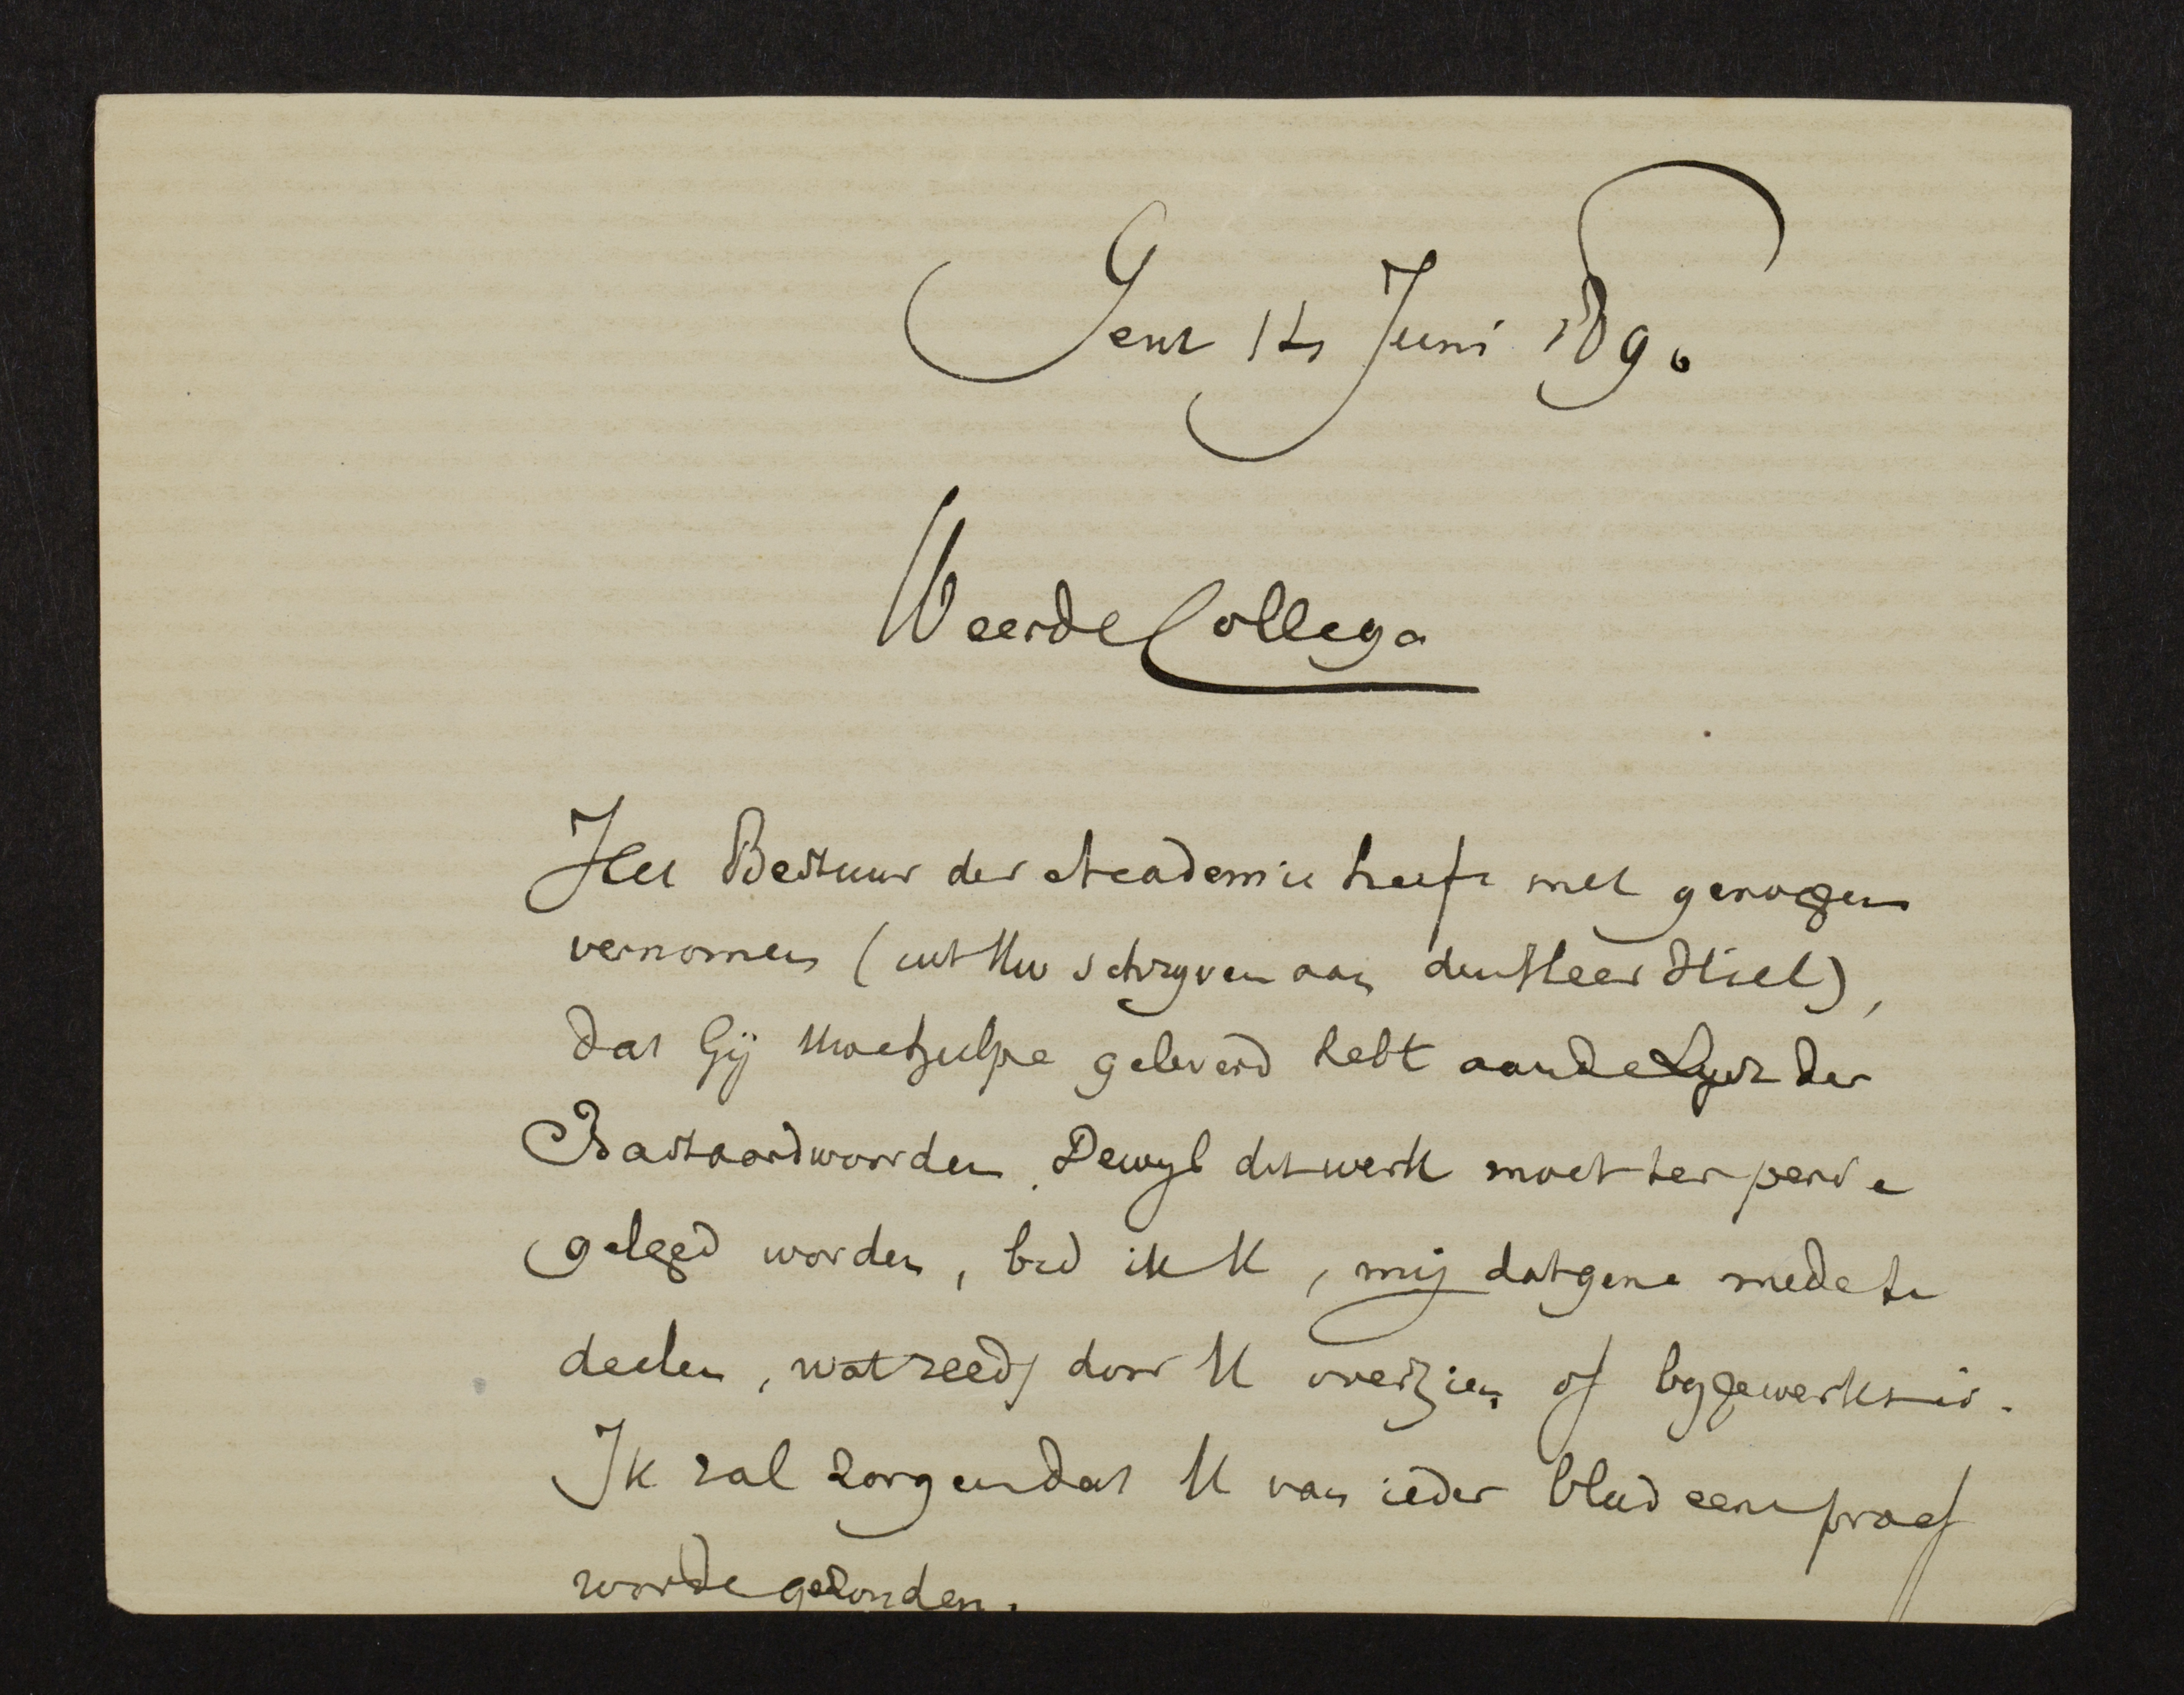 Gent 14 Juni 1890
Weerde Collega
Het Bestuur der Academie heeft met genoegen
vernomen (uit Uw schryven aan den Heer Stiel),
dat Gij Uwe hulpe geleverd hebt aan de Lyst der
Bastaardwoorden. Dewyl dit werk moet ter perse
gelegd worden, bid ik U, mij datgene mede te
deelen, wat reeds door U overzien of bygewerkt is.
Ik zal zorgen dat U van ieder blad eene proef
worde gezonden.